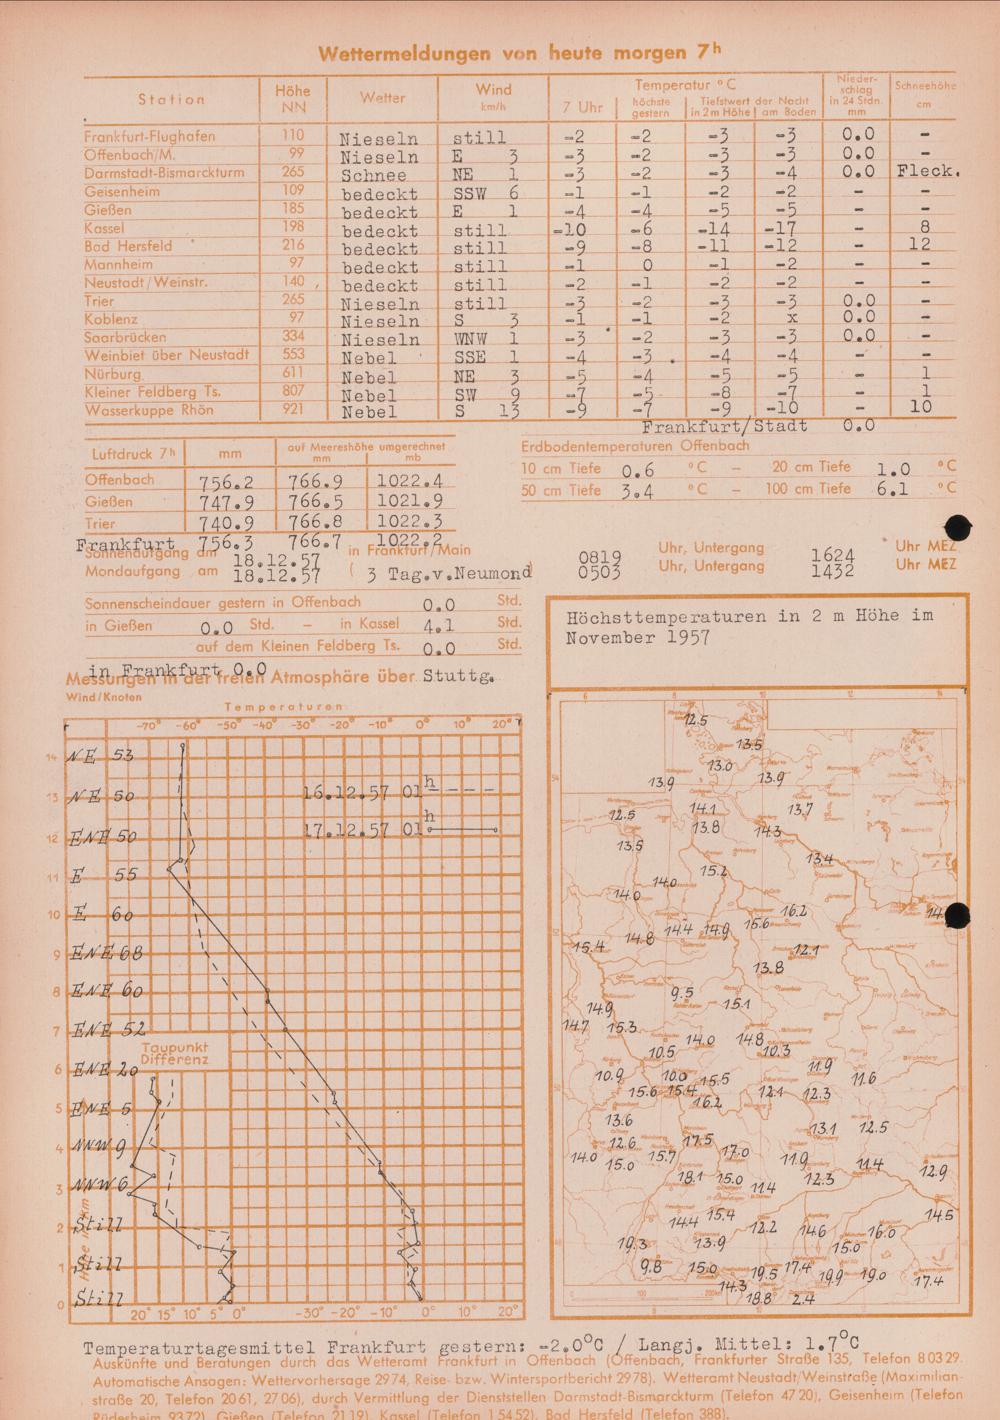 Wettermeldungen von heute morgen 7h
Station Höhe NN Wetter Wind km/h Temperatur °C Nieder-schlag in 24 Stdn. mm Schneehöhe cm
7 Uhr höchste gestern Tiefstwert der Nacht in 2 m Höhe am Boden
Frankfurt-Flughafen 110 Nieseln still -2 -2 -3 -3 0.0 -
Offenbach/M. 99 Nieseln E 3 -3 -2 -3 -3 0.0 -
Darmstadt-Bismarckturm 265 Schnee NE 1 -3 -2 -3 -4 0.0 Fleck.
Geisenheim 109 bedeckt SSW 6 -1 -1 -2 -2 - -
Gießen 185 bedeckt E 1 -4 -4 -5 -5 - -
Kassel 198 bedeckt still -10 -6 -14 -17 - 8
Bad Hersfeld 216 bedeckt still -9 -8 -11 -12 - 12
Mannheim 97 bedeckt still -1 0 -1 -2 - -
Neustadt/Weinstr. 140 bedeckt still -2 -1 -2 -2 - -
Trier 265 Nieseln still -3 -2 -3 -3 0.0 -
Koblenz 97 Nieseln S 3 -1 -1 -2 x 0.0 -
Saarbrücken 334 Nieseln WNW 1 -3 -2 -3 -3 0.0 -
Weinbiet über Neustadt 553 Nebel SSE 1 -4 -3 -4 -4 - -
Nürburg 611 Nebel NE 3 -5 -4 -5 -5 - 1
Kleiner Feldberg Ts. 807 Nebel SW 9 -7 -5 -8 -7 - 1
Wasserkuppe Rhön 921 Nebel S 13 -9 -7 -9 -10 - 10
Frankfurt/Stadt 0.0
Luftdruck 7h mm auf Meereshöhe umgerechnet mm mb
Offenbach 756.2 766.9 1022.4
Gießen 747.9 766.5 1021.9
Trier 740.9 766.8 1022.3
Frankfurt 756.3 766.7 1022.2
Erdbodentemperaturen Offenbach
10 cm Tiefe 0.6 °C – 20 cm Tiefe 1.0 °C
50 cm Tiefe 3.4 °C – 100 cm Tiefe 6.1 °C
Sonnenaufgang am 18.12.57 in Frankfurt/Main 0819 Uhr, Untergang 1624 Uhr MEZ
Mondaufgang am 18.12.57 ( 3 Tag.v.Neumond) 0503 Uhr, Untergang 1432 Uhr MEZ
Sonnenscheindauer gestern in Offenbach 0.0 Std.
in Gießen 0.0 Std. – in Kassel 4.1 Std.
auf dem Kleinen Feldberg Ts. 0.0 Std.
in Frankfurt 0.0
Messungen in der freien Atmosphäre über Stuttg.
Wind/Knoten
Temperaturen
-70° -60° -50° -40° -30° -20° -10° 0° 10° 20°
14 NE 53
13 NE 50 16.12.57 01h
12 ENE 50 17.12.57 01h
11 E 55
10 E 60
9 ENE 68
8 ENE 60
7 ENE 52
Taupunkt
Differenz
6 ENE 20
5 ENE 5
4 NNW 9
3 NNW 6
2 Still
1 Still
0 Still
Höhe in km
20° 15° 10° 5° 0° -30° -20° -10° 0° 10° 20°
Höchsttemperaturen in 2 m Höhe im
November 1957
12.5
13.5
13.0
13.9 13.9
14.1 13.7
12.5 13.8 14.3
13.5
13.4
15.2
14.0
14.0
16.2
15.6
14.4 14.9
14.8
15.4 12.1
13.8
9.5
15.1
14.9
14.7 15.3
14.0 14.8
10.5 10.3
11.9
10.9 10.0 15.5 11.6
15.6 15.4 12.1 12.3
16.2
13.6
13.1 12.5
12.6 17.5
14.0 15.7 17.0
15.0 11.9 11.4
12.9
18.1 15.0 12.3
11.4
14.4 15.4 14.5
12.2 14.6 16.0
19.3 13.9 15.0
9.8 15.0 17.4
19.5 19.9 19.0
14.3 17.4
18.8 2.4
Temperaturtagesmittel Frankfurt gestern: -2.0°C / Langj. Mittel: 1.7°C
Auskünfte und Beratungen durch das Wetteramt Frankfurt in Offenbach (Offenbach, Frankfurter Straße 135, Telefon 8 03 29.
Automatische Ansagen: Wettervorhersage 2974, Reise- bzw. Wintersportbericht 2978). Wetteramt Neustadt/Weinstraße (Maximilian-
straße 20, Telefon 20 61, 27 06), durch Vermittlung der Dienststellen Darmstadt-Bismarckturm (Telefon 47 20), Geisenheim (Telefon
Rüdesheim 93 72), Gießen (Telefon 21 19), Kassel (Telefon 1 54 52), Bad Hersfeld (Telefon 388).